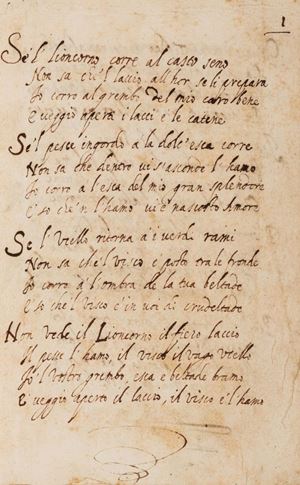 1
Se'l Lioncorno corre al casto seno
Non sa ch'il laccio all'hor se li prepara
Io corro al grembo del mio caro bene
E veggio opera i lacci e le catene
Se'l pesce ingordo a la dolc'esca corre
Non sa che dentro vi s'asconde l'hamo
Io corro a l'esca del mio gran splendore
E so ch'in l'hamo vi è nascosto Amore
Se l'Uccello ritorna a i verdi rami
Non sa che'l visco è posto tra le fronde
Io corro a l'ombra de la tua beltade
E so che'l visco è in voi di crudeltade
Non vede il Lioncorno il fiero laccio
Il pesce l'hamo, il visco il vago Uccello
Io'l vostro grembo, esca e beltade bramo
E veggio aperto il laccio, il visco e l'hamo